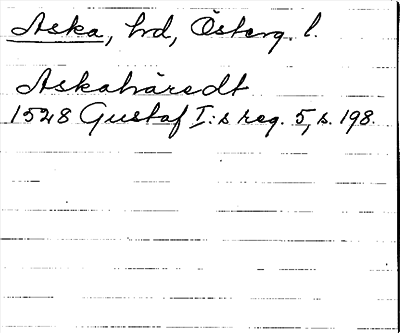 Aska, hd, Österg. l.
Askahäredt
1528 Gustaf I:s reg. 5, s. 198.